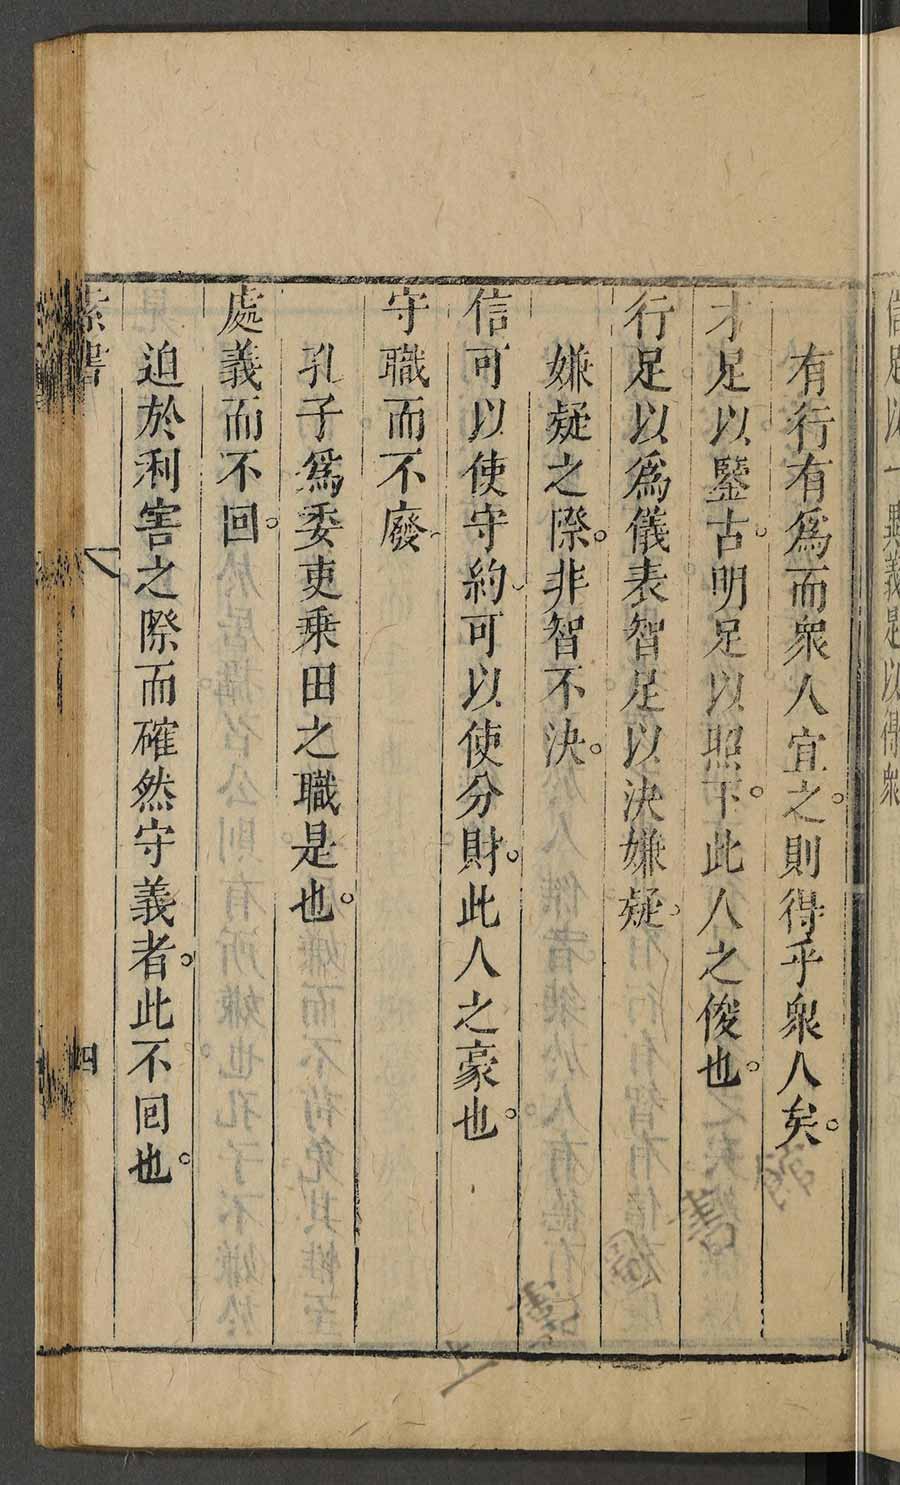 有行有爲而衆人宜之。則得乎衆人矣。
才足以鑒古。明足以照下。此人之俊也。
行足以爲儀表。智足以決嫌疑。
嫌疑之際。非智不決。
信可以使守約。可以使分財。此人之豪也。
守職而不廢。
孔子爲委吏乘田之職是也。
處義而不回。
迫於利害之際而確然守義者。此不回也。
素書
四